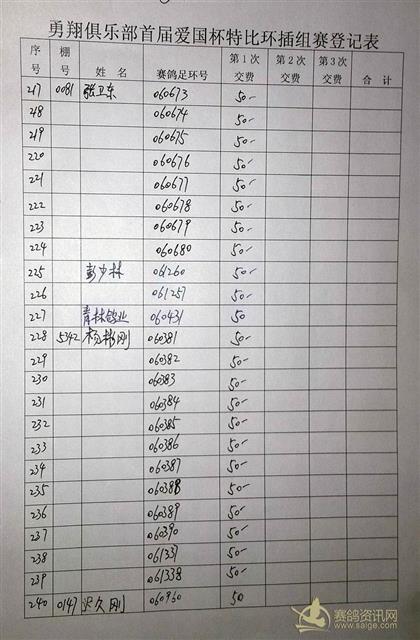 勇翔俱乐部首届爱国杯特比环插组赛登记表
序号 棚号 姓名 赛鸽足环号 第1次交费 第2次交费 第3次交费 合计
217 0081 张卫东 060673 50-
218 060674 50-
219 060675 50-
220 060676 50-
221 060677 50-
222 060678 50-
223 060679 50-
224 060680 50-
225 彭少林 061260 50-
226 061257 50-
227 青林鸽业 060431 50
228 5342 杨彬刚 060381 50-
229 060382 50-
230 060383 50-
231 060384 50-
232 060385 50-
233 060386 50-
234 060387 50-
235 060388 50-
236 060389 50-
237 060390 50-
238 061337 50-
239 061338 50-
240 0147 久刚 060960 50
赛鸽资讯网
www.saige.com